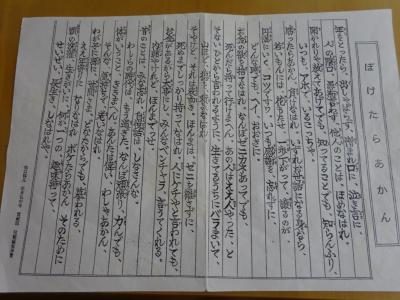 ぼけたらあかん
年をとったら、出しゃばらず、憎まれ口に、泣きごとに、
人の陰口、愚痴言わず、他人のことは、ほめなはれ。
聞かれりゃ教えてあげてでも、知ってることでも、知らんふり、
いつも、アホでいるこっちゃ。
勝ったらあかん、負けなはれ、いずれお世話になる身なら、
若いもんに、花もたせ、一歩下がって、譲るのが
円満に、いくコツですわ。いつも感謝を、忘れずに、
どんな時でも、へイ、おおきに。
お金の欲を、捨てなはれ、なんぼゼニカネあってでも、
死んだら持って行けまへん、あの人はええ人やった、と
そないに人から言われるように、生きてるうちに、バラまいて、
山ほど、徳を、積みなはれ。
そやけど、それは表向き。ほんまは、ゼニを離さずに、
死ぬまでしっかり持ってなはれ。人にケチやと言われても、
お金があるから大事にし、みんなベンチャラ、言うてくれる。
昔のことは、みな忘れ、
わしらの時代は、もう過ぎた。なんぼ頑張り、力んでも、
体がいうこと、ききまへん。あんたは偉い、わしゃあかん、
そんな気持で、おりなはれ。
わが子に孫に、世間さま、どなたからでも、慕われる、
ええ年寄りに、なりなはれ。ボケたらあかん、そのために
せいぜい、長生き、しなはれや。